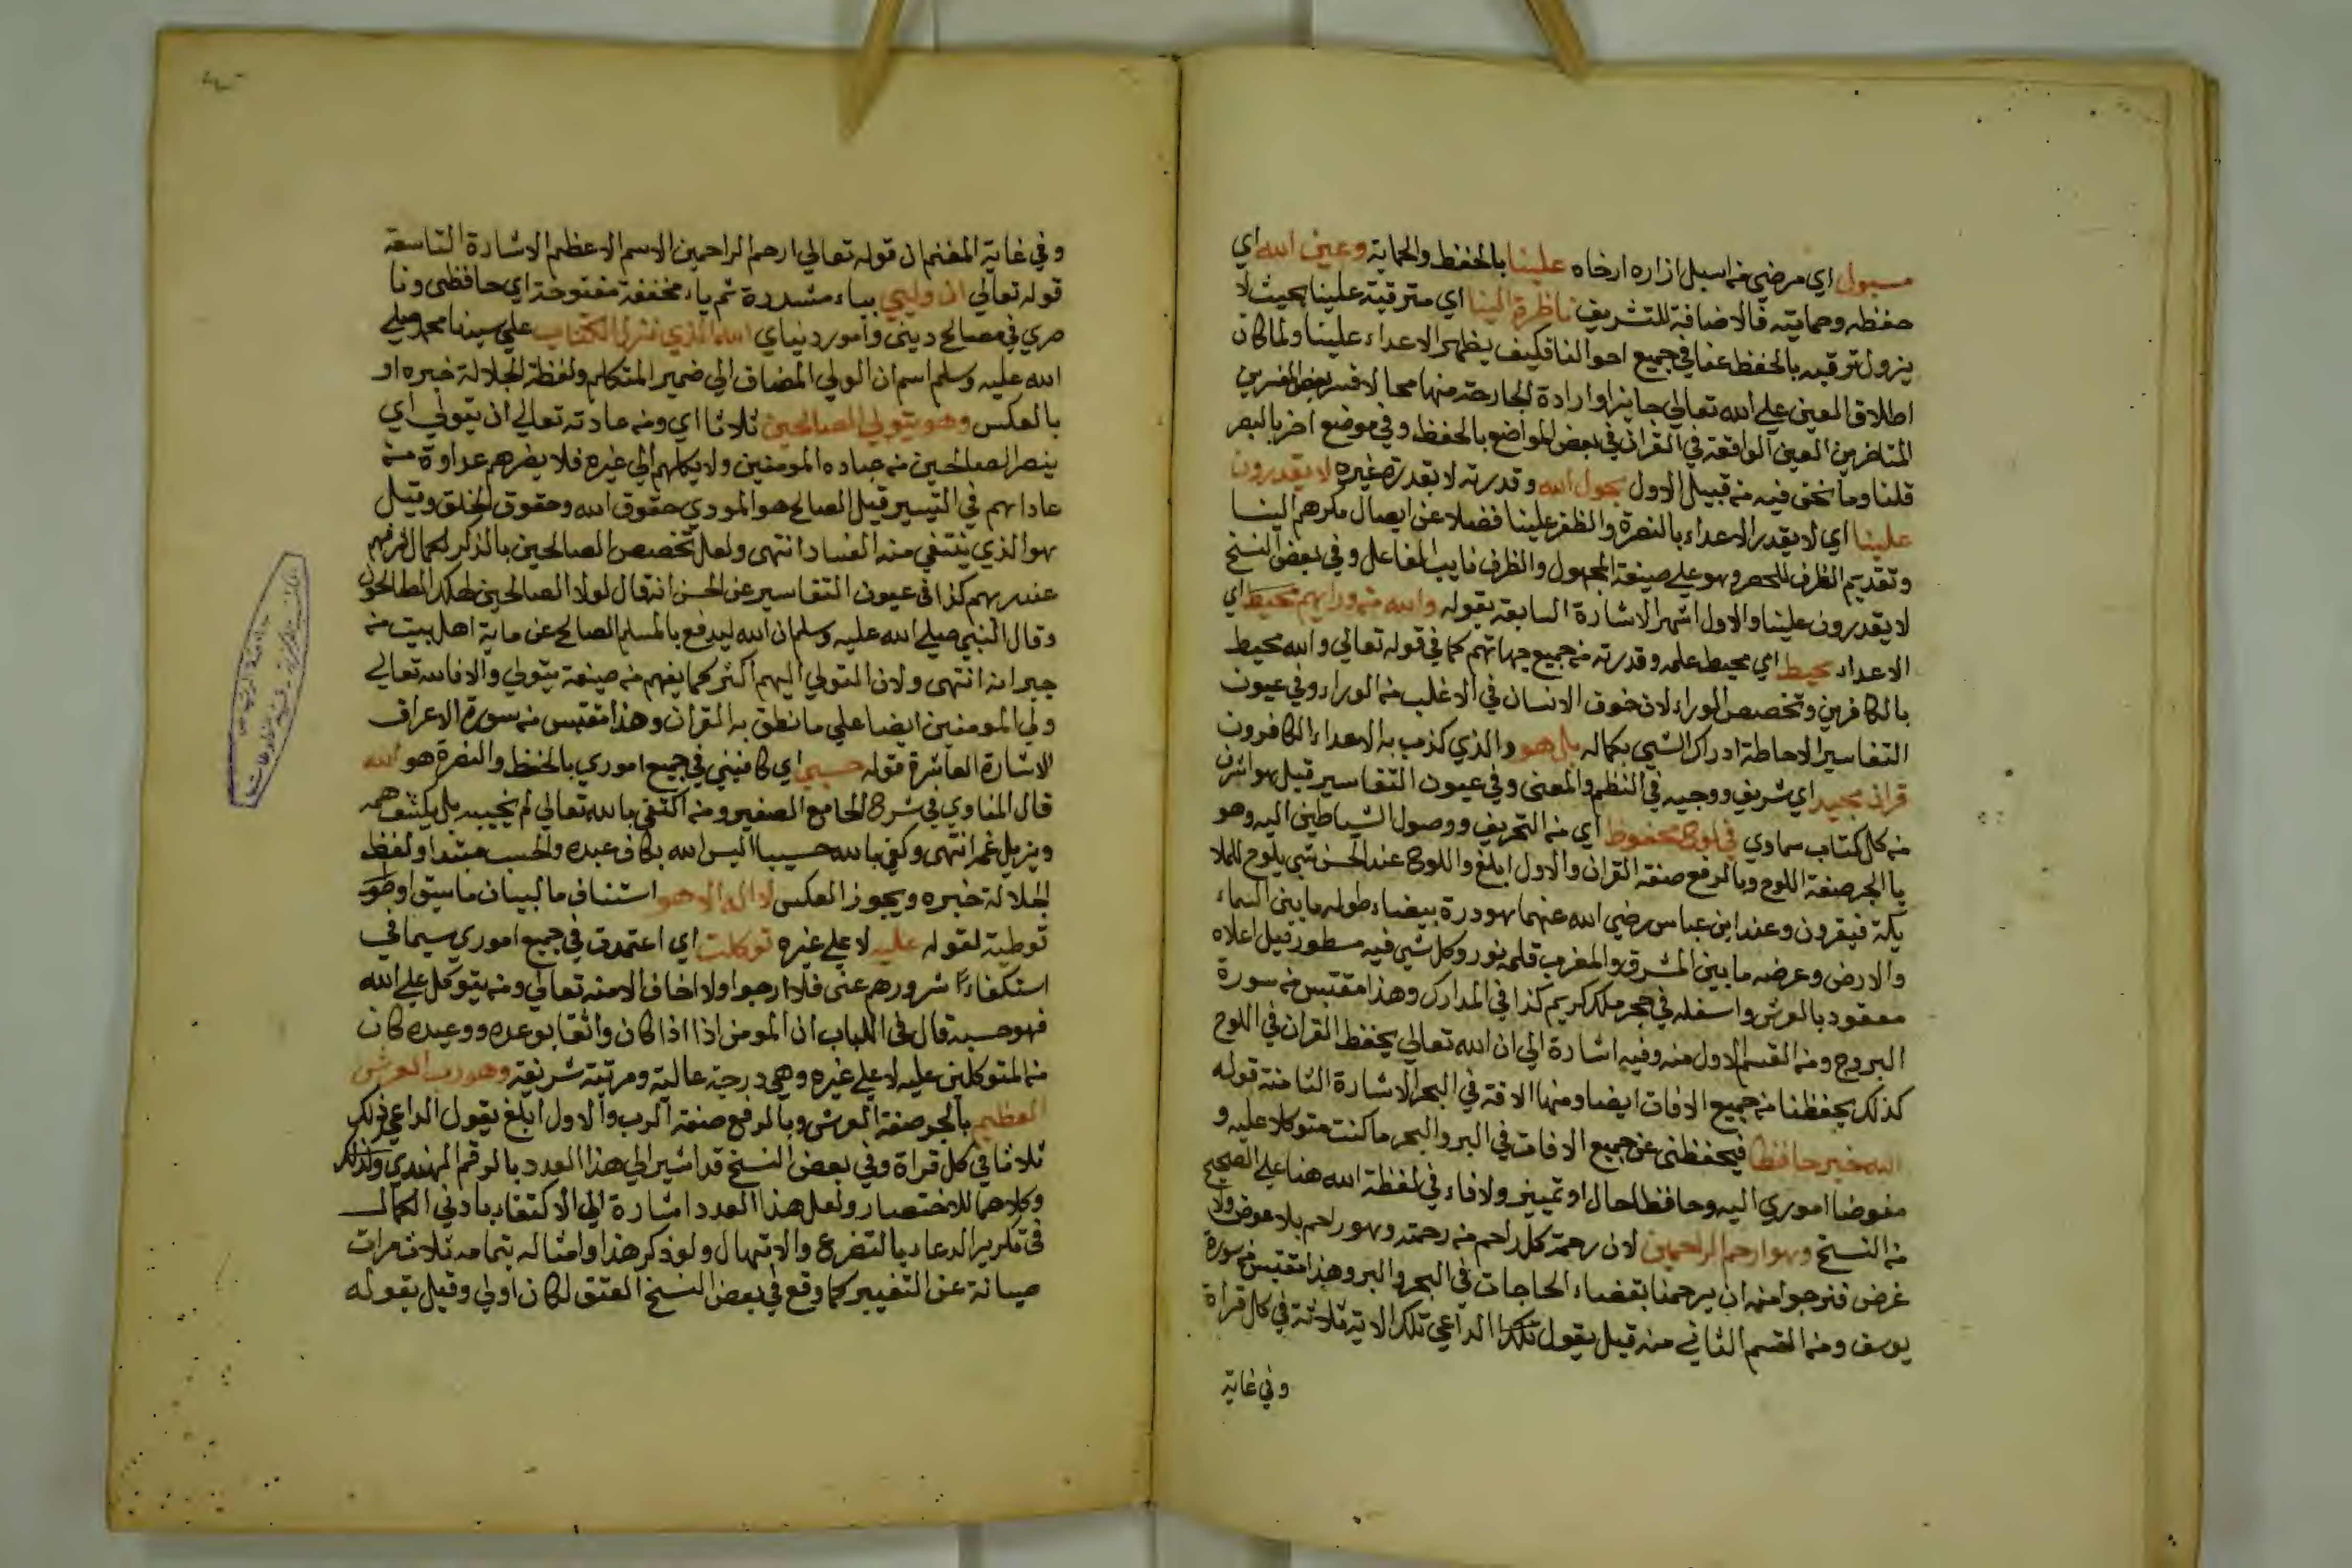 مسبول اي مرضي من اسبل ازاره ارخاه علينا بالحفظ والحماية وعين الله اي
حفظه وحمايته فالاضافة للتشريف ناظرة الينا اي مترقبة علينا بحيث لا
يزول ترقبه بالحفظ عنا في جميع احوالنا فكيف يظهر الاعداء علينا ولما كان
اطلاق العين علي الله تعالي جايزا وارادة الجارحة منها محالا فسر بعض المفسرين
المتاخرين العين الواقعة في القران في بعض المواضع بالحفظ وفي موضع اخر بالبصر
قلنا وما نحن فيه من قبيل الاول بحول الله وقدرته لا بقدرة غيره لا يقدرون
علينا اي لا يقدر الاعداء بالنصرة والظفر علينا فضلا عن ايصال مكرهم الينا
وتقديم الظرف للحصر وهو علي صيغة المجهول والظرف نايب الفاعل وفي بعض النسخ
لا يقدرون علينا والاول اشهر الاشارة السابعة بقوله والله من ورايهم محيط اي
الاعداء محيط اي محيط علمه وقدرته من جميع جهاتهم كما في قوله تعالي والله محيط
بالكافرين وتخصيص الوراء لان خوف الانسان في الاغلب من الوراء وفي عيون
التفاسير الاحاطة ادراك الشي بكماله بل هو والذي كذب به الاعداء الكافرون
قران مجيد اي شريف ووجيه في النظم والمعني وفي عيون التفاسير قيل هو اشرف
من كل كتاب سماوي في لوح محفوظ اي من التحريف ووصول الشياطين اليه وهو
بالجر صفة اللوح وبالرفع صفة القران والاول ابلغ واللوح عند الحسن شي يلوح للملا
يكة فيقرون وعند ابن عباس رضي الله عنهما هو درة بيضاء طوله ما بين السماء
والارض وعرضه ما بين المشرق والمغرب قلمه نور وكل شي فيه مسطور قيل اعلاه
معقود بالعرش واسفله في حجر ملك كريم كذا في المدارك وهذا مقتبس من سورة
البروج ومن القسم الاول منه وفيه اشارة الي ان الله تعالي يحفظ القران في اللوح
كذلك يحفظنا من جميع الافات ايضا ومنها الافة في البحر الاشارة الثامنة قوله
الله خير حافظا فيحفظني عن جميع الافات في البر والبحر ما كنت متوكلا عليه و
مفوضا اموري اليه وحافظا حال او تمييز ولا فاء في لفظة الله هنا علي الصحيح
من النسخ وهو ارحم الراحمين لان رحمة كل راحم من رحمته وهو راحم بلا عوض ولا
غرض فنرجوا منه ان يرحمنا بقضاء الحاجات في البحر والبر وهذا مقتبس من سورة
يوسف ومن القسم الثاني منه قيل يقول الداعي تلك الاية ثلاثة في كل قراة
وفي غاية
وفي غاية المغنم ان قوله تعالي ارحم الراحمين الاسم الاعظم الاشارة التاسعة
قوله تعالي ان وليي بياء مشددة ثم ياء مخففة مفتوحة اي حافظي ونا
صري في مصالح ديني وامور دنياي الله الذي نزل الكتاب علي سيدنا محمد صلي
الله عليه وسلم اسم ان الولي المضاف الي ضمير المتكلم ولفظة الجلالة خبره او
بالعكس وهو يتولي الصالحين ثلاثا اي ومن عادته تعالي ان يتولي اي
ينصر الصالحين من عباده المومنين ولا يكلهم الي غيره فلا يضرهم عداوة من
عاداهم في التيسير قيل الصالح هو المودي حقوق الله وحقوق الخلق وقيل
هو الذي ينتفي منه الفساد انتهي ولعل تخصيص الصالحين بالذكر لكمال شرفهم
عند ربهم كذا في عيون التفاسير عن الحسن انه قال لولا الصالحين لهلك الطالحون
وقال النبي صلي الله عليه وسلم ان الله ليدفع بالمسلم الصالح عن ماية اهل بيت من
جيرانه انتهي ولان التولي اليهم اكثر كما يفهم من صيغة يتولي والا فالله تعالي
ولي المومنين ايضا علي ما نطق به القران وهذا مقتبس من سورة الاعراف
الاشارة العاشرة قوله حسبي اي كافيني في جميع اموري بالحفظ والنصرة هو الله
قال المناوي في شرح الجامع الصغير ومن اكتفي بالله تعالي لم يخيبه بل يكشف همه
ويزيل غمه انتهي وكفي بالله حسيبا اليس الله بكاف عبده والحسب مبتدا ولفظ
الجلالة خبره ويجوز العكس لا اله الا هو استيناف ما لبيان ما سبق او هو
توطية لقوله عليه لا علي غيره توكلت اي اعتمدت في جميع اموري سيما في
استكفاء شرورهم عني فلا ارجوا ولا اخاف الا منه تعالي ومن يتوكل علي الله
فهو حسبه قال في اللباب ان المومن اذا اذا كان واثقا بوعده ووعيده كان
من المتوكلين عليه لا علي غيره وهي درجة عالية ومرتبة شريفة وهو رب العرش
العظيم بالجر صفة العرش وبالرفع صفة الرب والاول ابلغ يقول الداعي ذلك
ثلاثا في كل قراة وفي بعض النسخ قد اشير الي هذا العدد بالرقم الهندي وذلك
وكلاهما للاختصار ولعل هذا العدد اشارة الي الاكتفاء بادني الكمال
في تكرير الدعاء بالتضرع والابتهال ولو ذكر هذا وامثاله بتمامه ثلاث مرات
صيانة عن التغيير كما وقع في بعض النسخ العتق لكان اولي وقيل بقوله